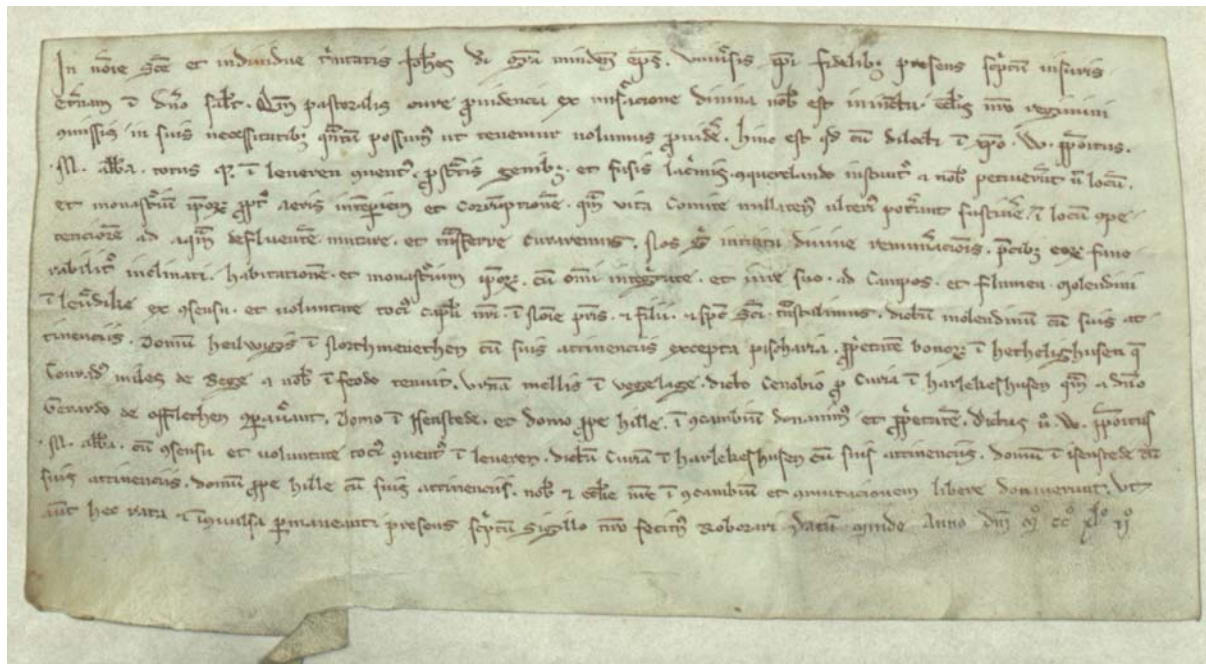 In nōie Sc̄e et individue t'nitatis Joh̄es dī gr̄a minden̄ ep̄s. Vniu'sis xp̄i fidelib; presens sc'ptū insuris
et'nam ī dn̄o sal't. Qm̄ pastoralis cure ꝓuidencia ex mis'acione diuina nob̄ est iniūcta eccl'iis nr̄o regimini
ꝯmissis in suis necessitatib; qn̄tū possum' ut tenemur volumus ꝓuid'e. hinc est qd̄ cū dilecti ī xp̄o .W. pp̄oitus.
.M. abb̄a. totus q; ī leueren ꝯuent' ꝓst'tis genib; et fusis lac'mis ꝯquerlando instit't a nob̄ petiuer̄t locū
et monast'iū ip̄oꝝ ꝓpt' aeris intēꝑiem et corruptionē. qm̄ vita Comite nullaten' ult'i' pot'ant sustin'e. ī locū ope
tenciorē ad aq̄m defluentē mutare. et t'nsferre curaremus. Nos g' intuitu diuine remun'acionis. p'cib; eoꝝ fauo
rabilit' inclinati. habitationē. et monast'ium ip̄oꝝ. cū om̄i integ'tate. et iure suo. ad Campos. et flumen. molendini
ī leu'dilie ex ꝯsensu. et voluntate toci' capl'i nr̄i. ī Nōie pr̄is. ⁊ filii. ⁊ sp̄c Sc̄i. t'nstulimus. dictū molendinū cū suis at
tinenciis. Domū heilwigis ī Northmenethen cū suis attinenciis excepta piscaria. ꝓp'etatē bonoꝝ ī hethelighusen q̄
Conrad' miles de Bege a nob̄ ī feodo tenuit. Vrnā mellis ī vegelage. dicto Cenobio ꝓ Curia ī harlekeshusen qm̄ a dn̄o
Gerardo de offlethen ꝯꝑau'ant. Domo ī Isenstede. et domo ꝓpe hille. ī ꝯcambiū donauim' et ꝓp'etatē. Dictus ū .W. pp̄oitus
.M. abb̄a. cū ꝯsensu et voluntate toci' ꝯuent' ī leueren. dictā Curiā ī harlekeshusen cū suis attinenciis. domū ī isenstede cū
suis attinenciis. domū ꝓpe hille cū suis attinenciis. nob̄ ⁊ eccl'ie nr̄e ī ꝯcambiū et ꝯmutacionem libere donauerunt. Vt
aūt hec rata ⁊ īꝯuulsa ꝑmaneant presens sc'ptū Sigillo nr̄o fecim' Roborari Datū minde Anno dn̄i mº ccº xlº iiº